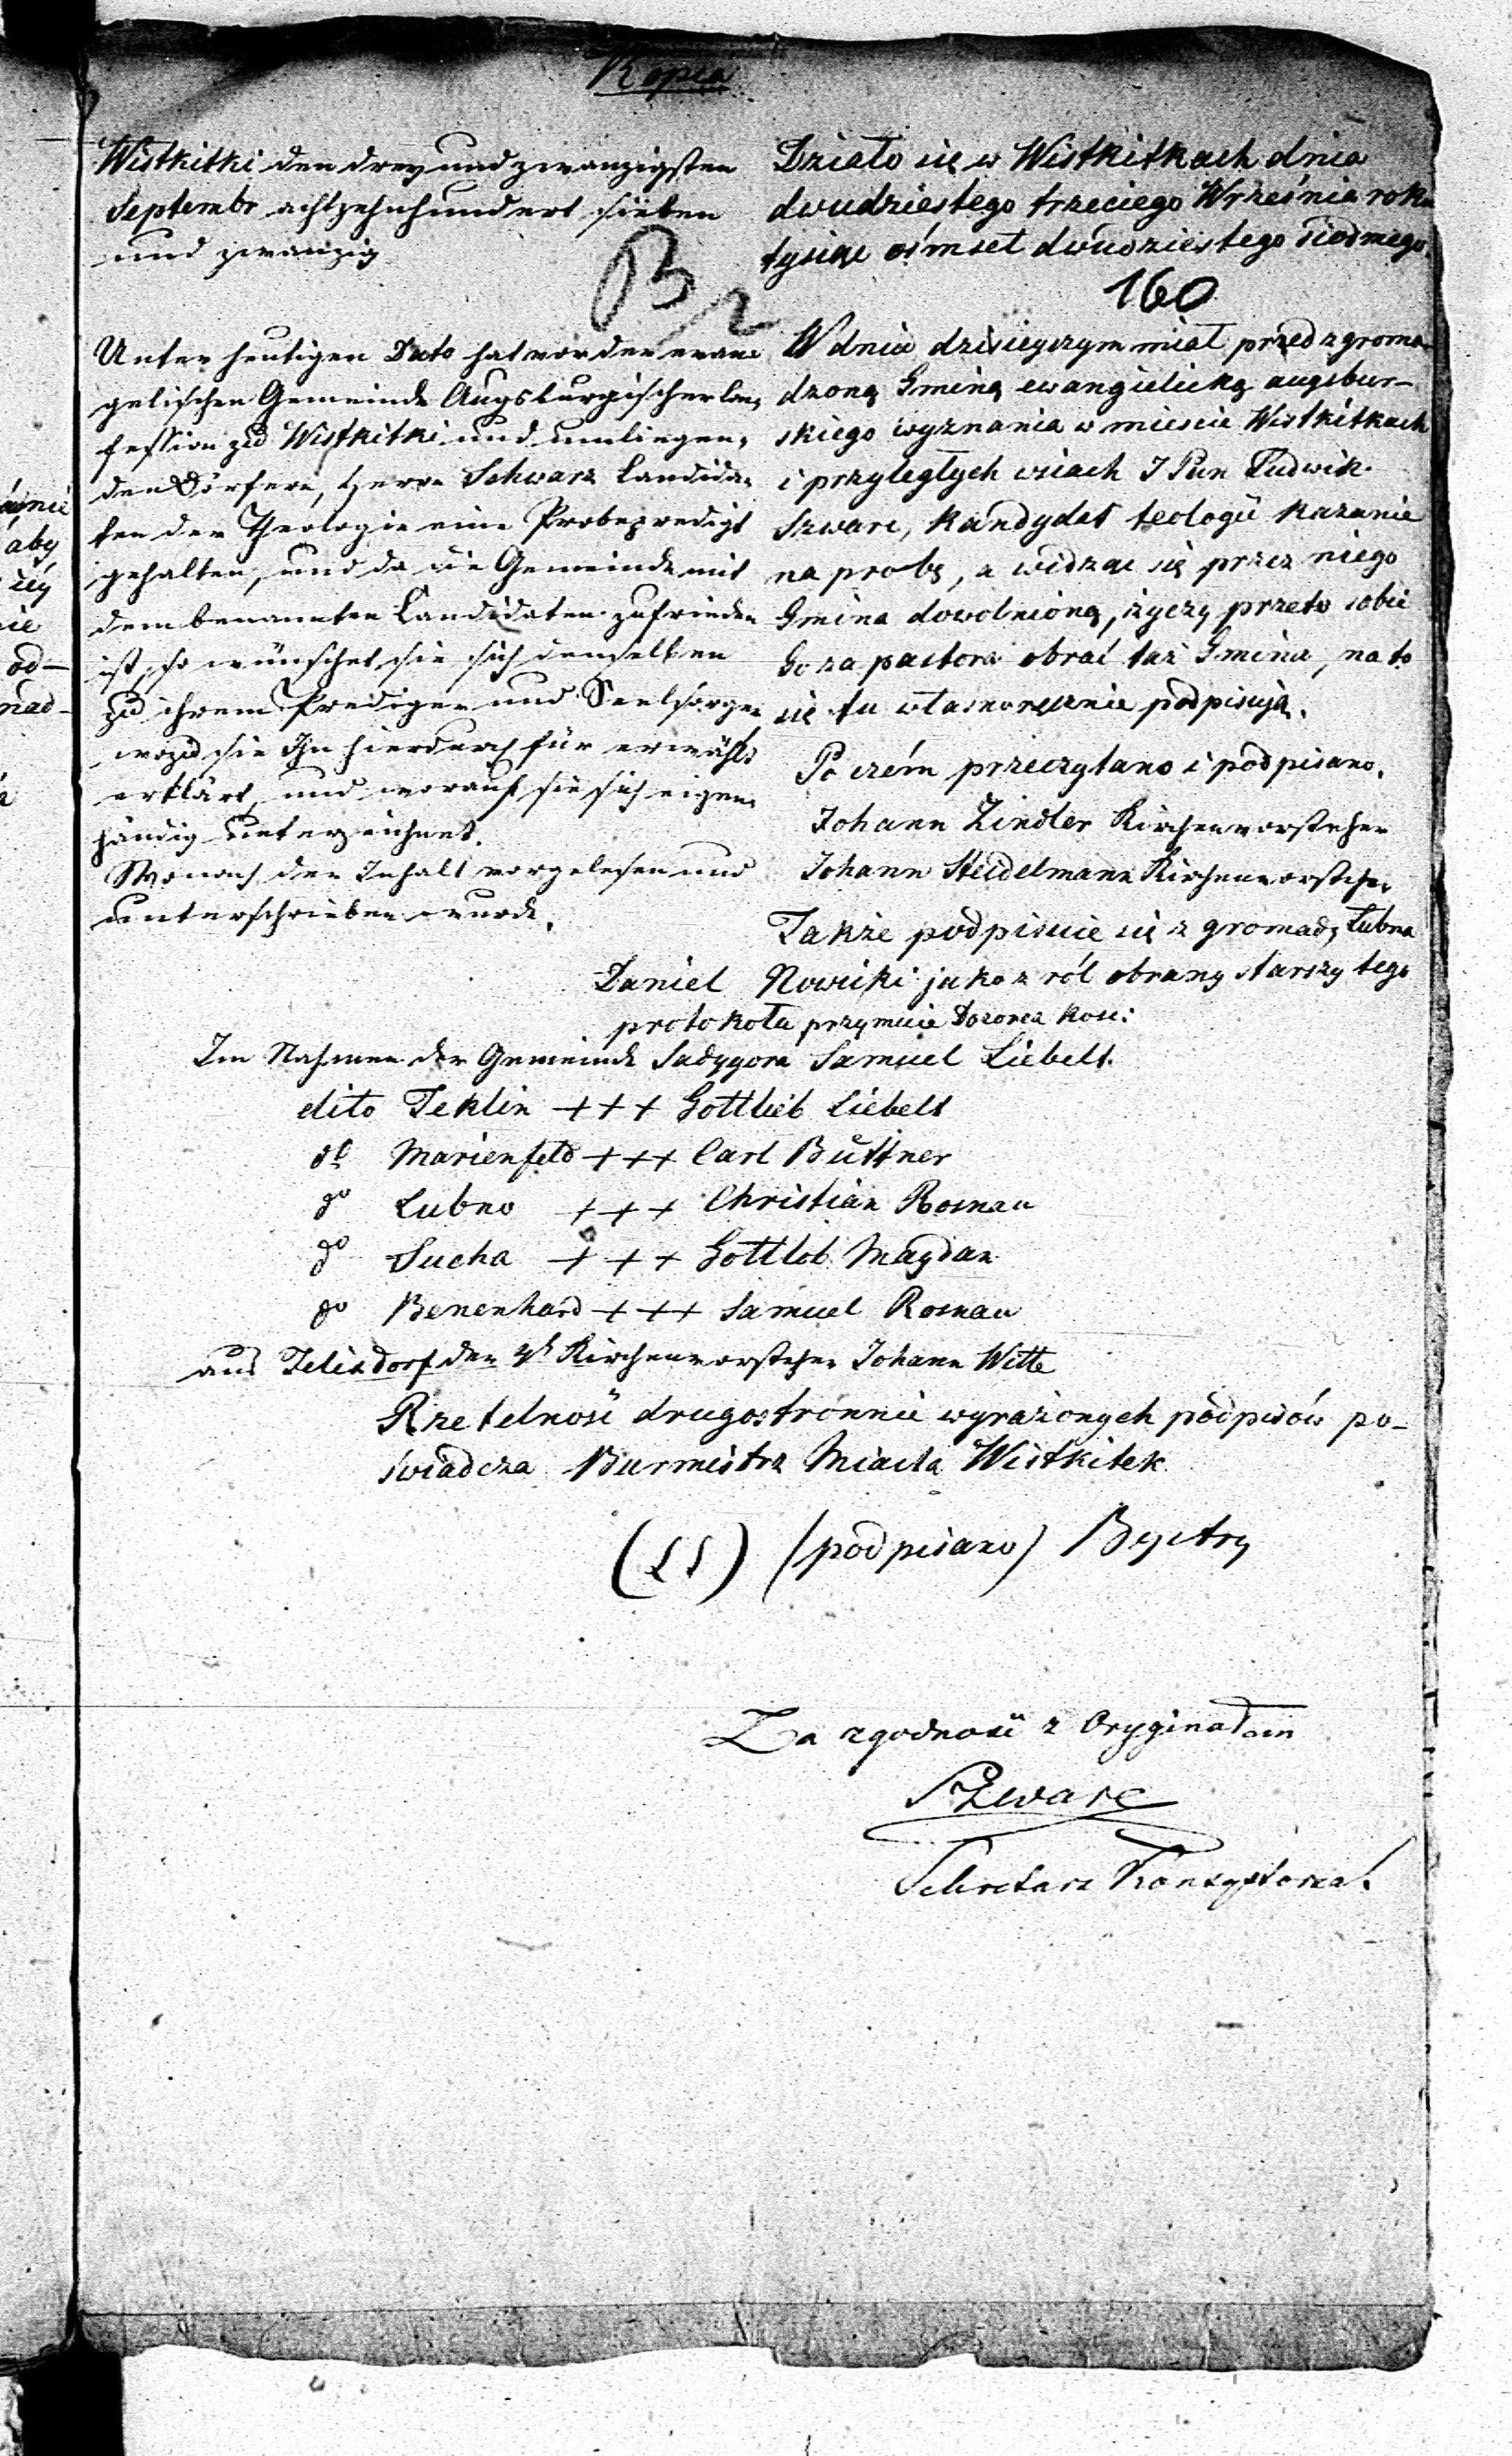 Kopia
Wistkitki den drey und zwanzigsten
Septembr achtzehnhundert sieben
und zwanzig
B
Unter heutigen Dato hat vor der evan-
gelischen Gemeinde Augsburgischer Con-
fession zu Wistkitki und umliegen-
den Dörfern, Herr Schwarz Candida-
ten der Theologie eine Probepredigt
gehalten, und da die Gemeinde mit
dem benannten Candidaten zufrieden
ist, so wünschet sie sich denselben
zu ihrem Prediger und Seelsorger
wozu sie Ihn hierdurch für erwählt
erklärt, und worauf sie sich eigen-
händig unterzeichnet.
Wonach der Inhalt vorgelesen und
unterschrieben wurde.
Działo się w Wistkitkach dnia
dwudziestego trzeciego Września roku
tysiąc ośmset dwudziestego siodmego.
160
W dniu dzisieyszym miał przed zgroma-
dzoną Gminą ewangielicką augsbur-
skiego wyznania w miescie Wistkitkach
i przyległych wsiach J Pan Ludwik
Szwarc, Kandydat teologii kazanie
na probę, a widząc się przez niego
Gmina dowolnioną, życzy przeto sobie
Go za pastora obrać taż Gmina, na to
się tu własnoręcznie podpisują.
Po czém przeczytano i podpisano.
Johann Zindler Kirchenvorsteher
Johann Heidelmann Kirchenvorsteher
Także podpisuie się z gromady Łubna
Daniel Nowicki jako z ról obrany starszy tego
protokołu przymuie Dozorca kosc:
Im Nahmen der Gemeinde Sadygora Samuel Liebelt.
dito Teklin +++ Gottlieb Liebelt
do Marienfeld +++ Carl Büttner
do Lubno +++ Christian Rosnau
do Sucha +++ Gottlob Maydan
do Benenhard +++ Samuel Rosnau
aus Felixdorf der Kirchenvorsteher Johann Witte
Rzetelność drugostronnie wyrażonych podpisów po-
świadcza Burmistrz Miasta Wistkitek
(LS) (podpisano) Bystry
Za zgodność z Oryginałem
Szwarc
Sekretarz Konsystorza.
aby
od-
nad-